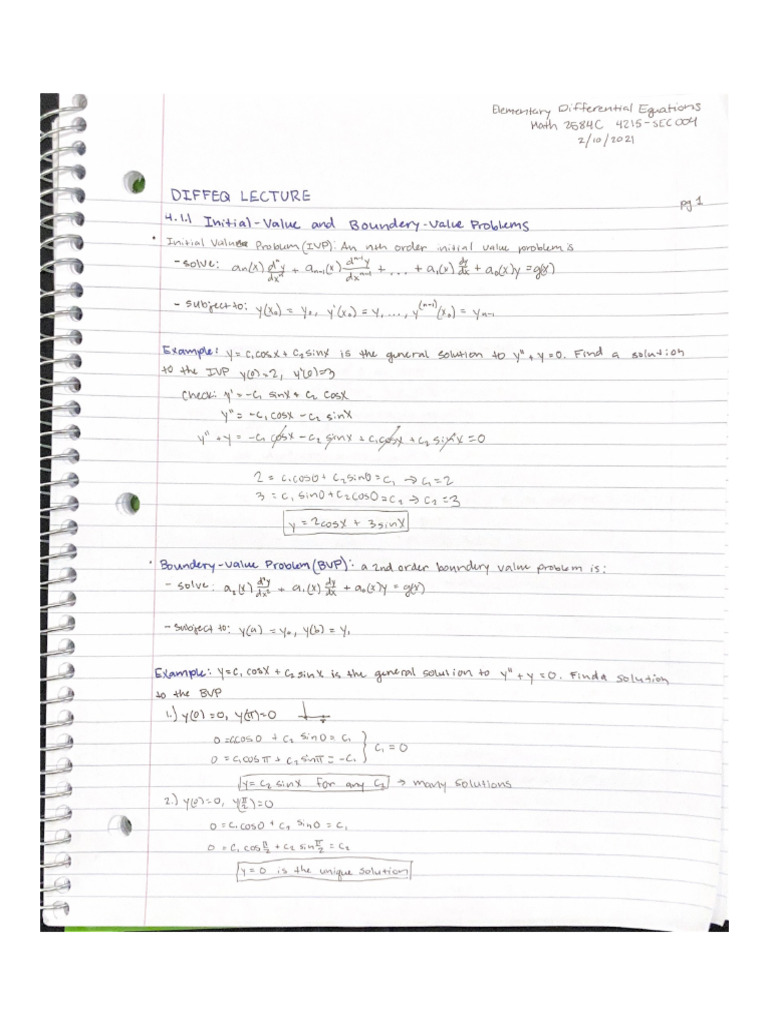 Elementary Differential Equations
Math 2584C 4215-SEC004
2/10/2021
DIFFEQ LECTURE
pg 1
4.1.1 Initial-Value and Boundery-Value Problems
• Initial Value Problem (IVP): An nth order initial value problem is
- solve: aₙ(x) dⁿy/dxⁿ + aₙ₋₁(x) dⁿ⁻¹y/dxⁿ⁻¹ + ... + a₁(x) dy/dx + a₀(x)y = g(x)
- subject to: y(x₀) = y₀, y'(x₀) = y₁ ..., y⁽ⁿ⁻¹⁾(x₀) = yₙ₋₁
Example: y = c₁cosx + c₂sinx is the general solution to y" + y = 0. Find a solution
to the IVP y(0)=2, y'(0)=3
Check: y' = -c₁ sinx + c₂ cosx
y" = -c₁cosx - c₂ sinx
y" + y = -c₁ cosx - c₂ sinx + c₁cosx + c₂ sinx = 0
2 = c₁cos0 + c₂sin0 = c₁ → c₁ = 2
3 = c₁ sin0 + c₂cos0 = c₂ → c₂ = 3
y = 2cosx + 3sinx
• Boundery-Value Problem (BVP): a 2nd order boundery value problem is:
- solve: a₂(x) d²y/dx² + a₁(x) dy/dx + a₀(x)y = g(x)
- subject to: y(a) = y₀, y(b) = y₁
Example: y = c₁ cosx + c₂ sinx is the general solution to y" + y = 0. Find a solution
to the BVP
1.) y(0) = 0, y(π) = 0
0 = c₁cos0 + c₂ sin0 = c₁
0 = c₁cosπ + c₂ sinπ = -c₁ } c₁ = 0
y = c₂ sinx for any c₂ → many solutions
2.) y(0) = 0, y(π/2) = 0
0 = c₁cos0 + c₂ sin0 = c₁
0 = c₁ cos π/2 + c₂ sin π/2 = c₂
y = 0 is the unique solution